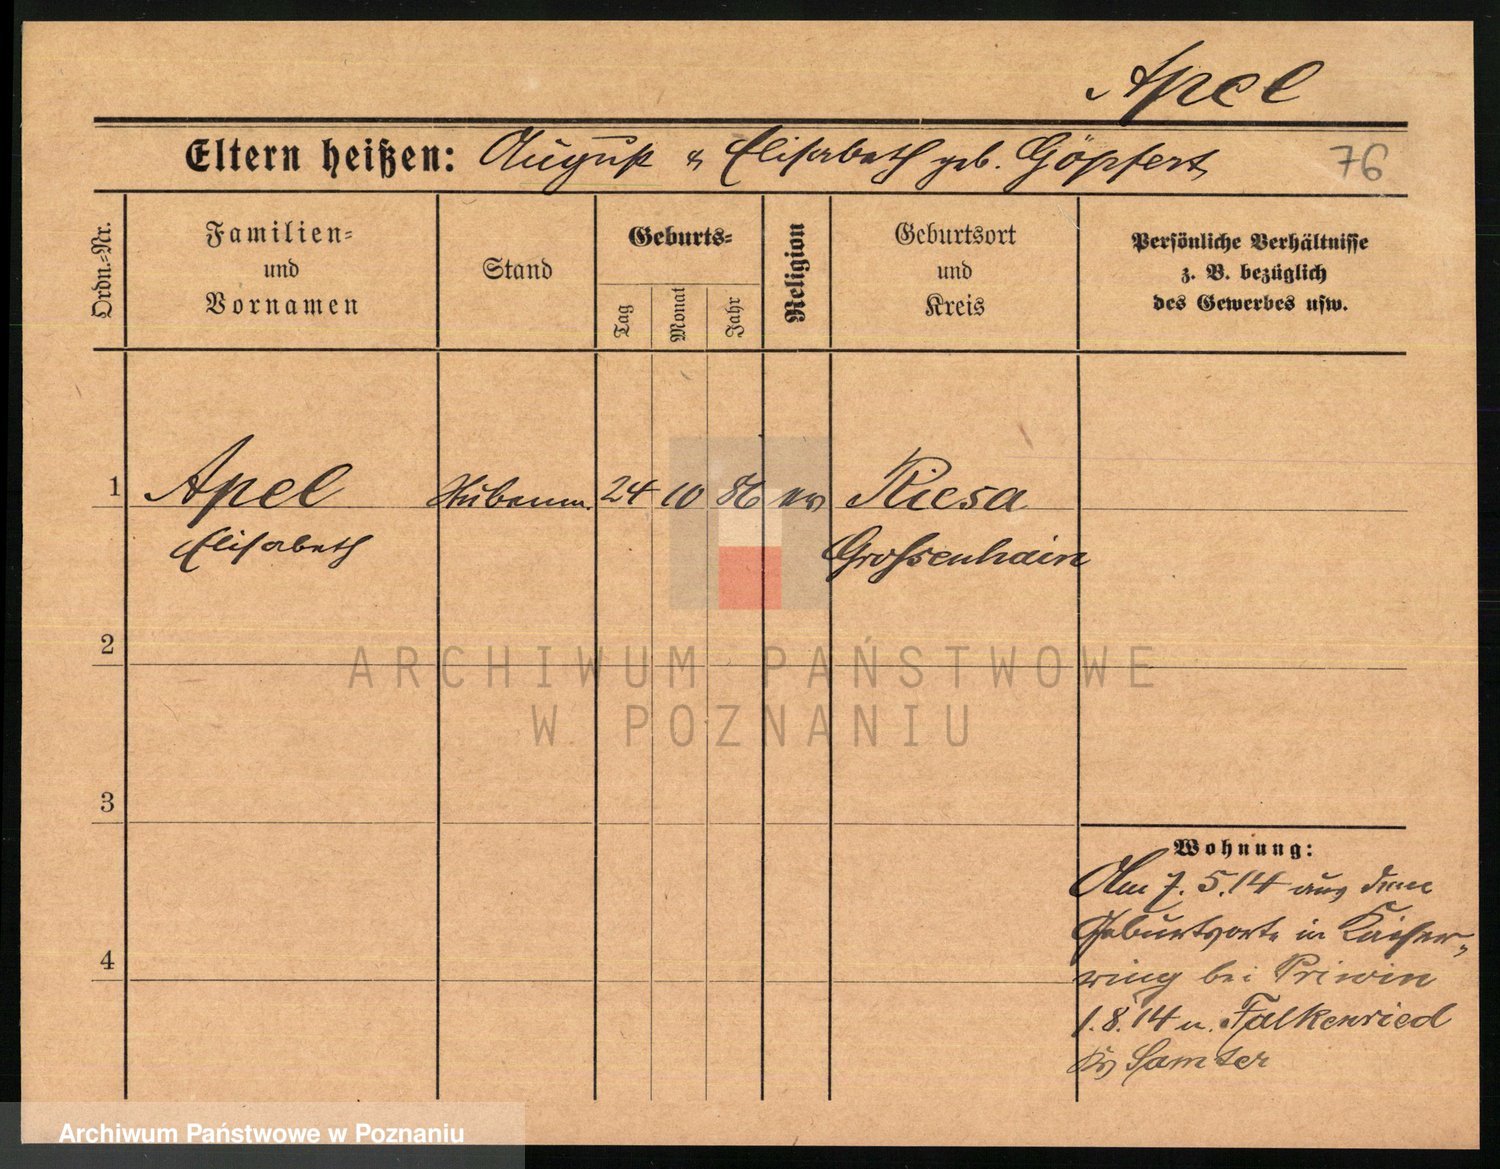 Apel
Eltern heißen: August & Elisabeth geb. Göpfert
76
Ordn.-Nr.
Familien-
und
Vornamen
Stand
Geburts-
Tag
Monat
Jahr
Religion
Geburtsort
und
Kreis
Persönliche Verhältnisse
z. B. bezüglich
des Gewerbes usw.
1 Apel 24 10 86 ev Riesa
Elisabeth Grossenhain
2
3
4
Wohnung:
Am 7.5.14 aus dem
Geburtsorte in Kaiser-
ring bei Priwin
1.8.14 n. Falkenried
Kr Samter
ARCHIWUM PAŃSTWOWE
W POZNANIU
Archiwum Państwowe w Poznaniu